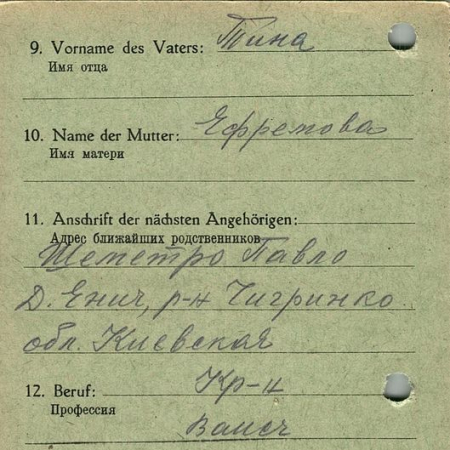 9. Vorname des Vaters: Тина
Имя отца
10. Name der Mutter: Ефремова
Имя матери
11. Anschrift der nächsten Angehörigen:
Адрес ближайших родственников
Шепетро Павло
Д. Енич, р-н Чигринко
обл. Киевская
12. Beruf: Кр-н
Профессия